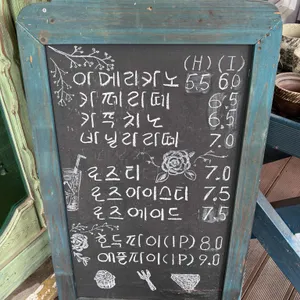 (H) (I)
아메리카노 5.5 6.0
카페라떼 6.5
카푹치노 6.5
바닐라라떼 7.0
로즈티 7.0
로즈아이스티 7.5
로즈에이드 7.5
호두파이(1P) 8.0
애플파이(1P) 9.0